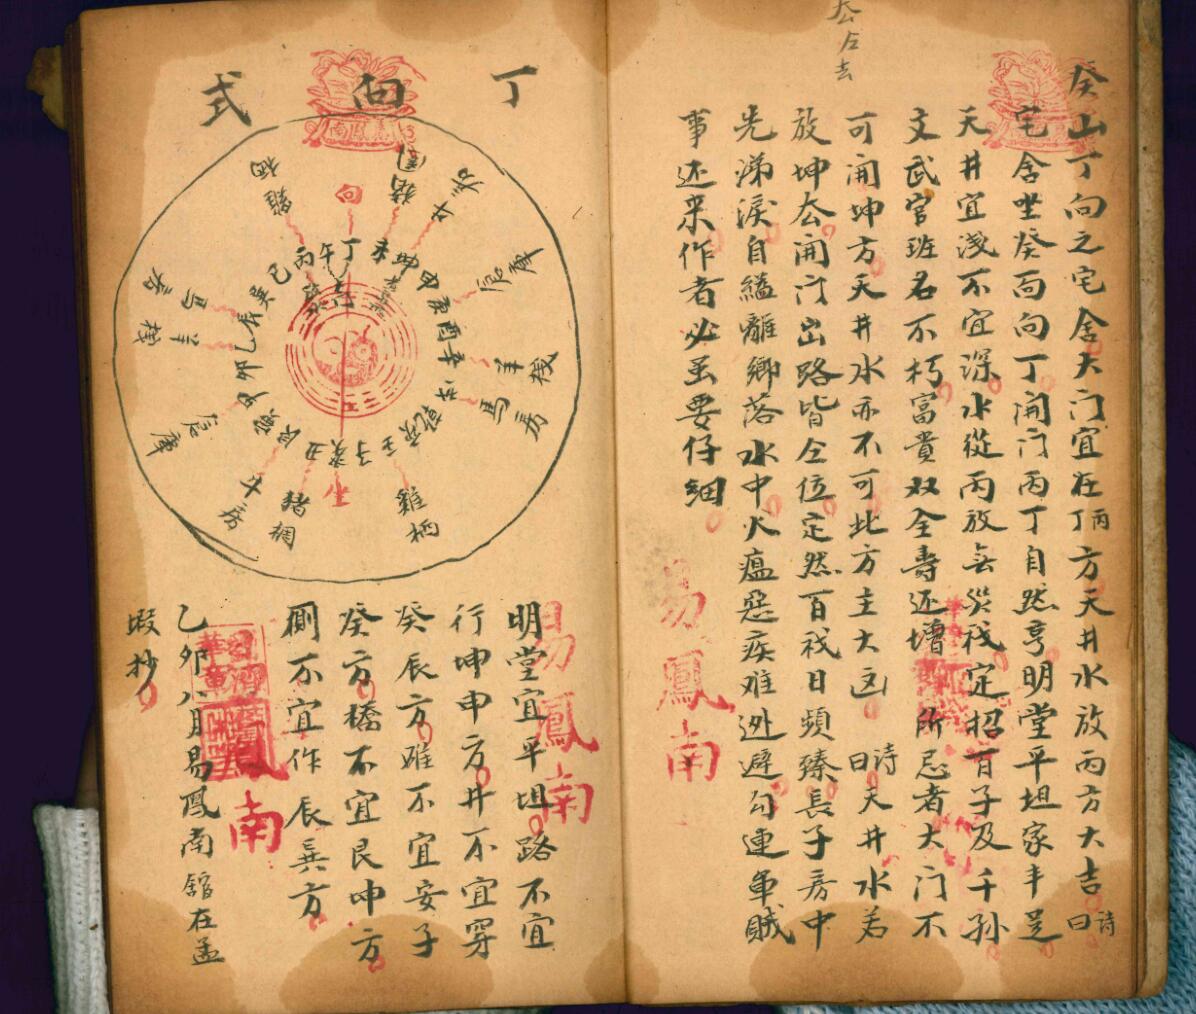 癸山丁向之宅舍大门宜在丙丁方天井水放丙方大吉诗曰
宅舍坐癸面向丁開门丙丁自然亨明堂平坦家丰足
天井宜浅不宜深水從丙放無災伐定招百子及千孫
文武官班名不朽富貴双全壽还增所忌者大门不
可開坤方天井水亦不可北方主大凶诗曰天井水若
放坤公開门出路皆仝位定然百伐日頻臻長子房中
先涕淚自縊離鄉落水中火瘟惡疾难迯避勾連軍贼
事还來作者必虽要仔細
公占去
易鳳南
丁向式
向
丁
午
丙
巳
巽
辰
乙
卯
甲
艮
丑
子
壬
乾
辛
酉
庚
申
坤
未
坐
猪
牛房
倉庫
羊棧
馬房
雞栖
猪欄
牛房
倉庫
羊棧
馬房
雞栖
明堂宜平坦路不宜
行坤申方井不宜穿
癸辰方碓不宜安子
癸方橋不宜艮坤方
厠不宜作辰巽方
乙卯八月易鳳南舘在孟
暇抄
易鳳南
鳳南